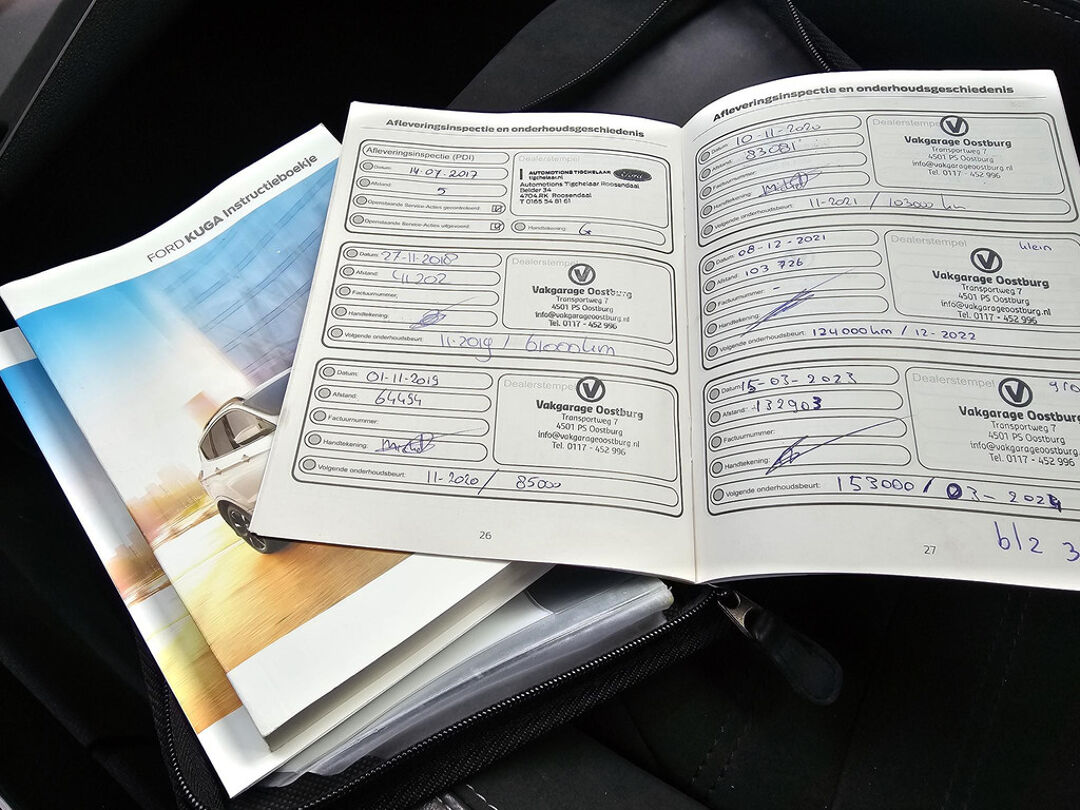 FORD KUGA Instructieboekje
Afleveringsinspectie en onderhoudsgeschiedenis
Afleveringsinspectie (PDI)
Datum: 14-07-2017
Afstand: 5
Openstaande Service-Acties gecontroleerd:
Openstaande Service-Acties uitgevoerd:
Dealerstempel
AUTOMOTIONS TIGCHELAAR
tigchelaar.nl
Ford
Automotions Tigchelaar Roosendaal
Belder 34
4704 RK Roosendaal
T 0165 54 81 61
Handtekening:
Datum: 27-11-2018
Afstand: 41202
Factuurnummer:
Handtekening:
Dealerstempel
Vakgarage Oostburg
Transportweg 7
4501 PS Oostburg
info@vakgarageoostburg.nl
Tel. 0117 - 452 996
Volgende onderhoudsbeurt: 11-2019 / 61000km
Datum: 01-11-2019
Afstand: 64494
Factuurnummer:
Handtekening:
Dealerstempel
Vakgarage Oostburg
Transportweg 7
4501 PS Oostburg
info@vakgarageoostburg.nl
Tel. 0117 - 452 996
Volgende onderhoudsbeurt: 11-2020 / 85000
26
Afleveringsinspectie en onderhoudsgeschiedenis
Datum: 10-11-2020
Afstand: 83081
Factuurnummer:
Handtekening:
Dealerstempel
Vakgarage Oostburg
Transportweg 7
4501 PS Oostburg
info@vakgarageoostburg.nl
Tel. 0117 - 452 996
Volgende onderhoudsbeurt: 11-2021 / 103000 km
Datum: 08-12-2021
Afstand: 103 726
Factuurnummer: -
Handtekening:
Dealerstempel klein
Vakgarage Oostburg
Transportweg 7
4501 PS Oostburg
info@vakgarageoostburg.nl
Tel. 0117 - 452 996
Volgende onderhoudsbeurt: 124000km / 12-2022
Datum: 15-03-2023
Afstand: 132903
Factuurnummer:
Handtekening:
Dealerstempel
Vakgarage Oostburg
Transportweg 7
4501 PS Oostburg
info@vakgarageoostburg.nl
Tel. 0117 - 452 996
Volgende onderhoudsbeurt: 153000 / 03-2024
27
blz 3